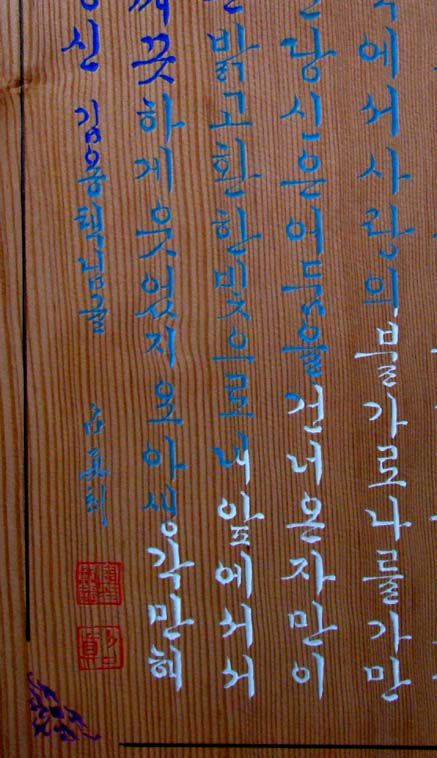 에서사랑의불가로나를가만
당신은어둠을건너온자만이
밝고환한빛으로내앞에서서
끗하게웃었지요아생각만해
신 김용택님글